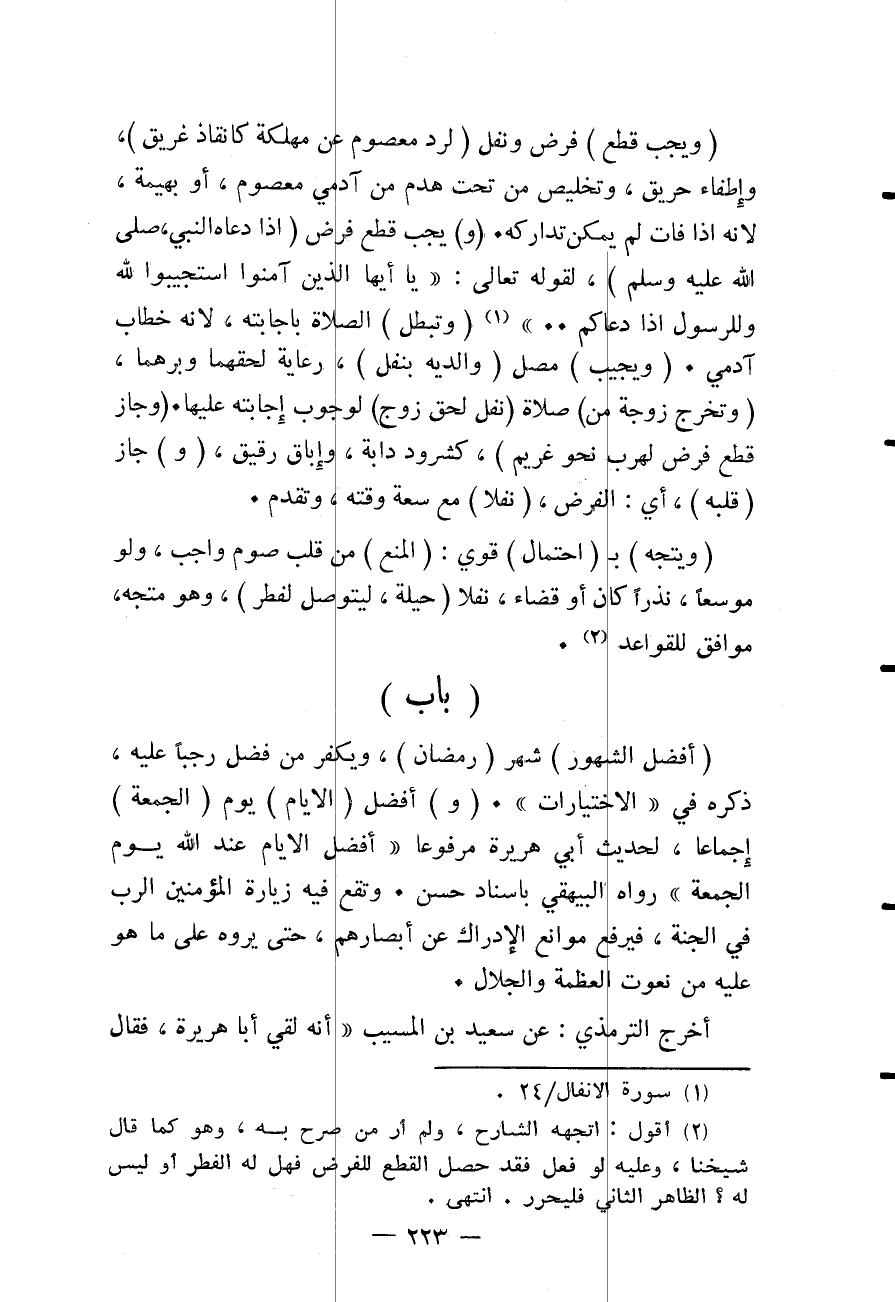 ( ويجب قطع ) فرض ونفل ( لرد معصوم عن مهلكة كانقاذ غريق )،
وإطفاء حريق ، وتخليص من تحت هدم من آدمي معصوم ، أو بهيمة ،
لانه اذا فات لم يمكن تداركه. (و) يجب قطع فرض ( اذا دعاه النبي،صلى
الله عليه وسلم ) ، لقوله تعالى : « يا أيها الذين آمنوا استجيبوا لله
وللرسول اذا دعاكم .. » (١) ( وتبطل ) الصلاة باجابته ، لانه خطاب
آدمي . ( ويجيب ) مصل ( والديه بنفل ) ، رعاية لحقهما وبرهما ،
( وتخرج زوجة من) صلاة (نفل لحق زوج) لوجوب إجابته عليها.(وجاز
قطع فرض لهرب نحو غريم ) ، كشرود دابة ، وإباق رقيق ، ( و ) جاز
( قلبه ) ، أي : الفرض ، ( نفلا ) مع سعة وقته ، وتقدم .
( ويتجه ) بـ ( احتمال ) قوي : ( المنع ) من قلب صوم واجب ، ولو
موسعاً ، نذراً كان أو قضاء ، نفلا ( حيلة ، ليتوصل لفطر ) ، وهو متجه،
موافق للقواعد (٢) .
( باب )
( أفضل الشهور ) شهر ( رمضان ) ، ويكفر من فضل رجباً عليه ،
ذكره في « الاختيارات » . ( و ) أفضل ( الايام ) يوم ( الجمعة )
إجماعا ، لحديث أبي هريرة مرفوعا « أفضل الايام عند الله يـــوم
الجمعة » رواه البيهقي باسناد حسن . وتقع فيه زيارة المؤمنين الرب
في الجنة ، فيرفع موانع الإدراك عن أبصارهم ، حتى يروه على ما هو
عليه من نعوت العظمة والجلال .
أخرج الترمذي : عن سعيد بن المسيب « أنه لقي أبا هريرة ، فقال
(١) سورة الانفال/٢٤ .
(٢) أقول : اتجهه الشارح ، ولم أر من صرح بـــه ، وهو كما قال
شيخنا ، وعليه لو فعل فقد حصل القطع للفرض فهل له الفطر أو ليس
له ؟ الظاهر الثاني فليحرر . انتهى .
— ٢٢٣ —